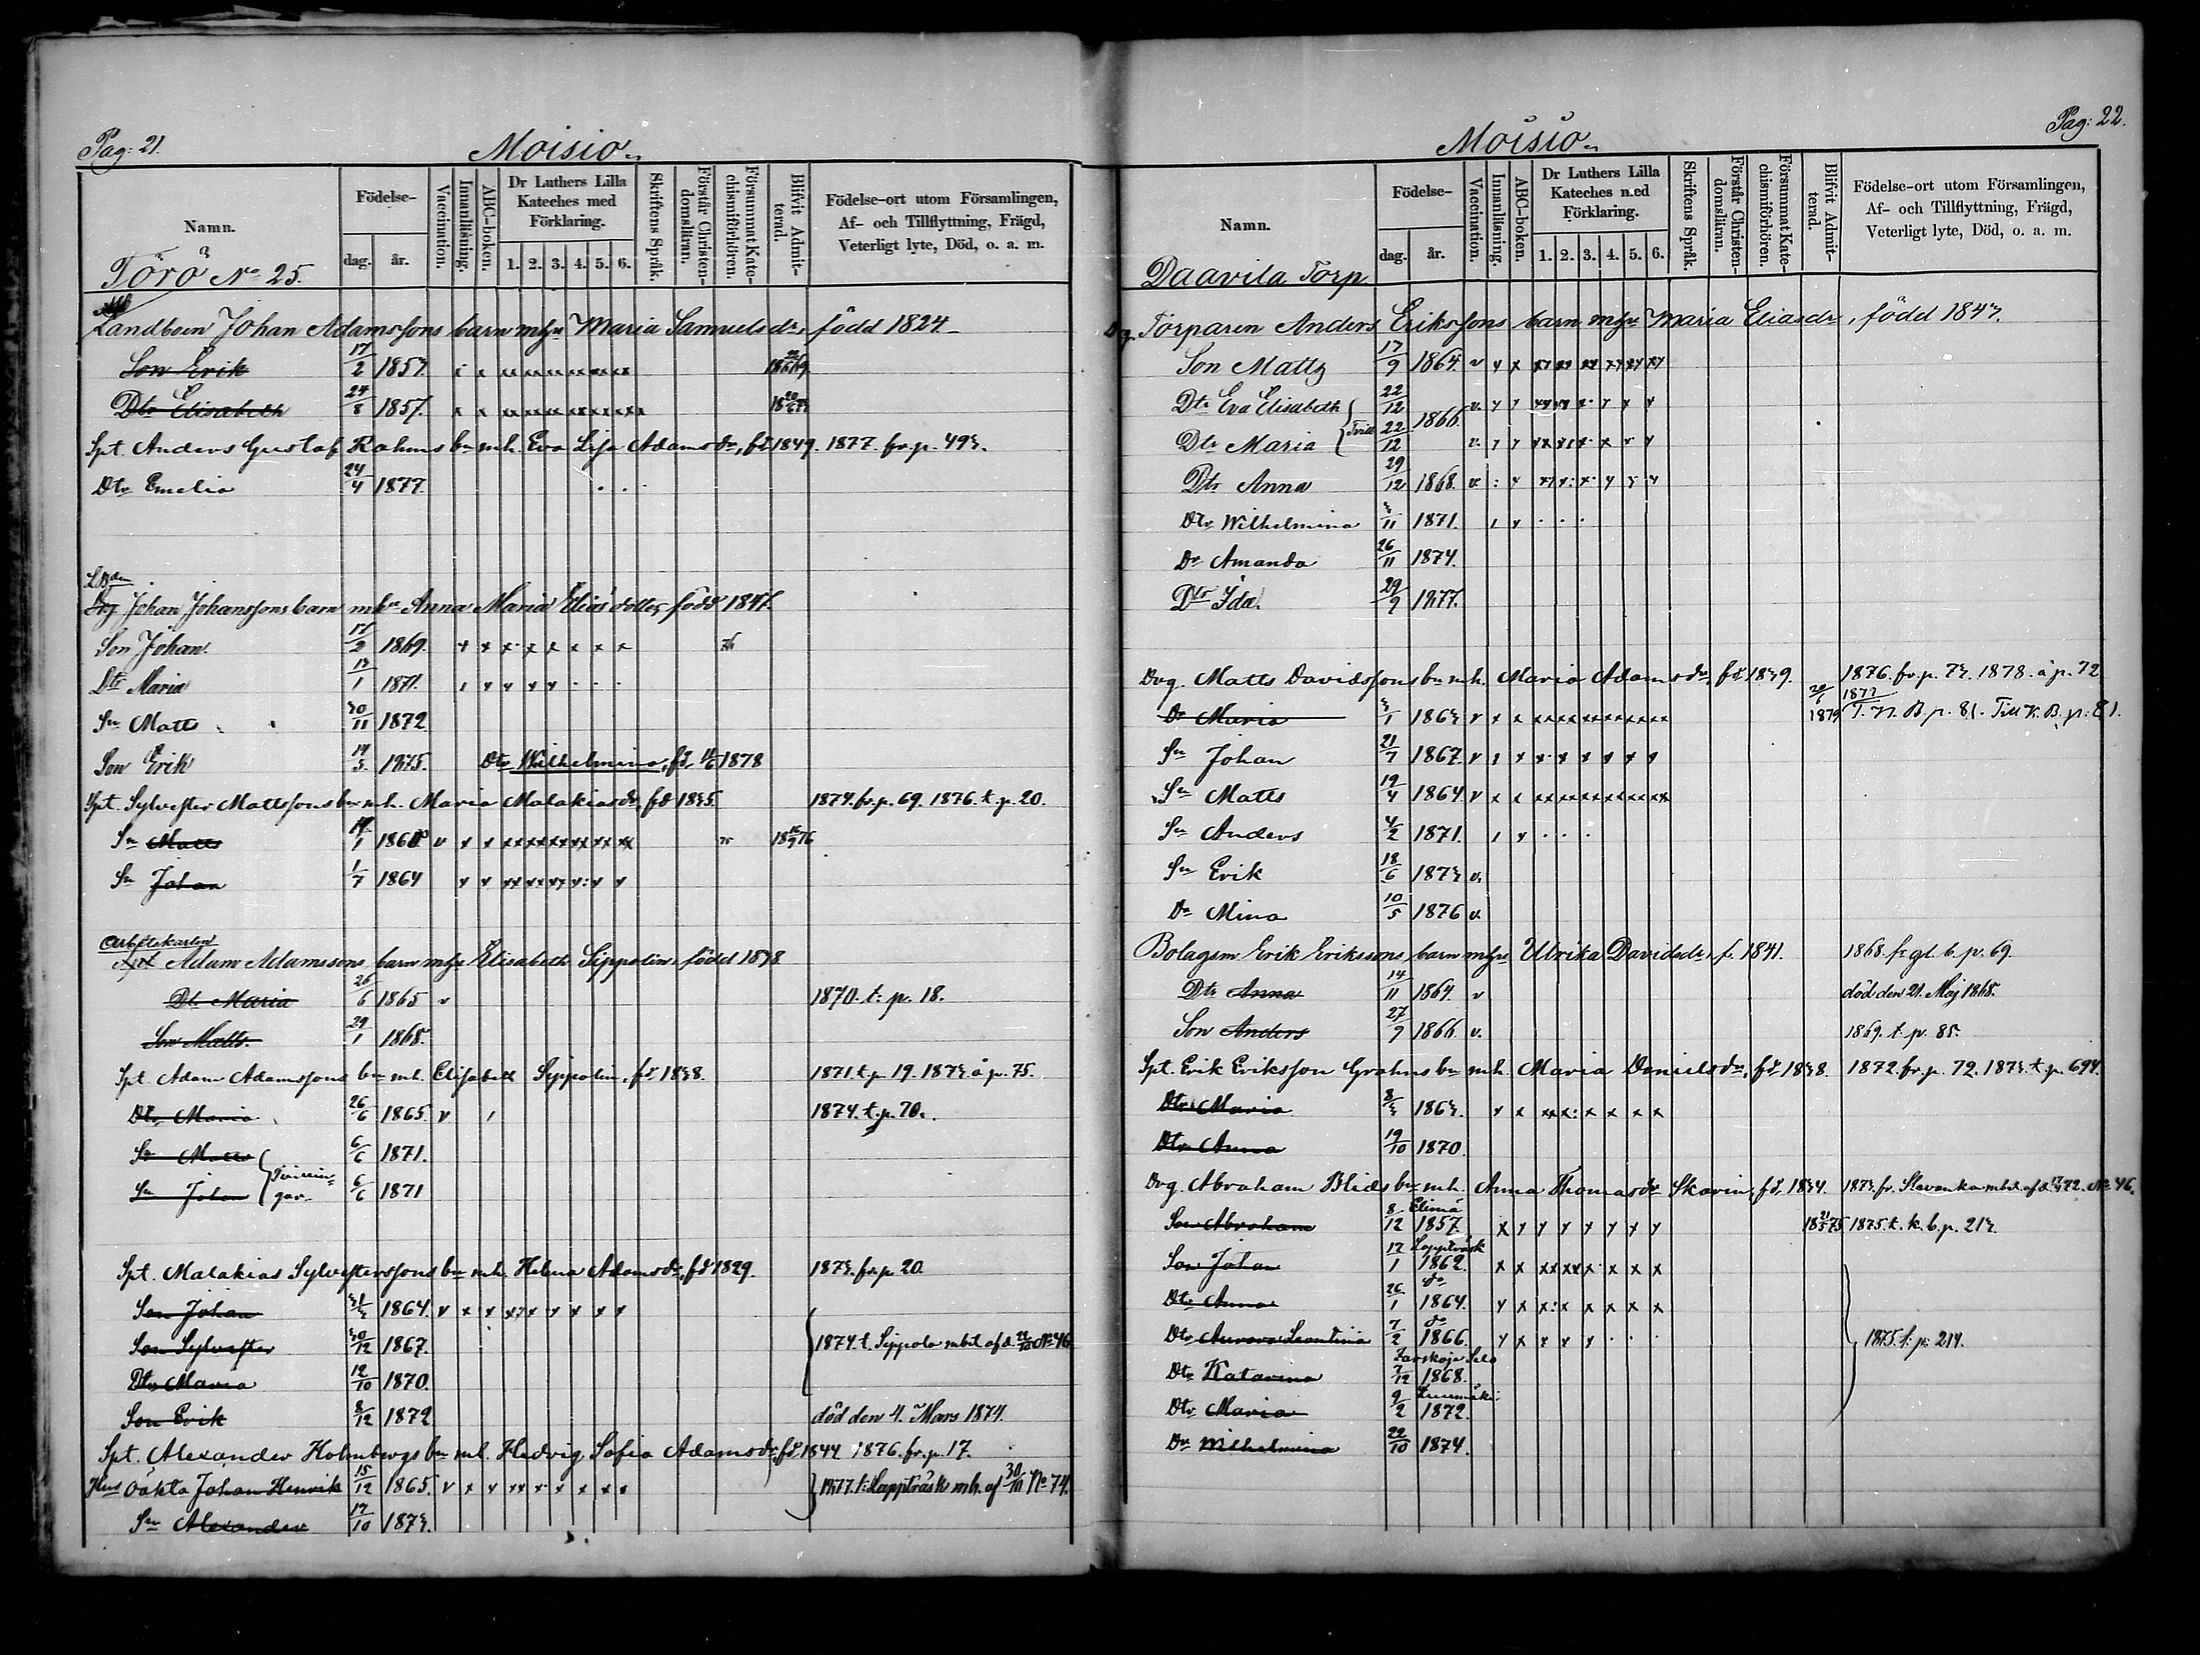 Pag: 21.
Moisio.
Namn.
Födelse-
dag.
år.
Vaccination.
Innanläsning.
ABC-boken.
Dr Luthers Lilla Kateches med Förklaring.
1. 2. 3. 4. 5. 6.
Skriftens Språk.
Förstår Christendomsläran.
Försummat Katechismiförhören.
Blifvit Admitterad.
Födelse-ort utom Församlingen,
Af- och Tillflyttning, Frägd,
Veterligt lyte, Död, o. a. m.
Törö No 25.
Landboen Johan Adamssons barn m hu Maria Samuelsdr, född 1824
Son Erik 17/2 1857.
Dtr Elisabeth 24/8 1857.
Spt. Anders Gustaf Rahms bn m.h. Eva Lisa Adamsdr, fd 1849. 1877. fr. p. 493.
Dtr Emelia 24/4 1877.
Johan Johanssons barn m hu Anna Maria Elias dotter, född 1847.
Son Johan. 1869.
Dtr Maria 13/1 1871.
Sn Matts 30/11 1872
Son Erik 1875. Dtr Wilhelmina, fd. 1878
Spt. Sylvester Mattssons bn m.h. Maria Malakiasdr, fd 1835. 1874. fr. p. 69. 1876. t. p. 20.
Sn Matts
Sn Johan 1/7 1864
Arbetskarlen
Adam Adamssons barn m hu Elisabeth Sippolin, född 1838
Dtr Maria 26/6 1865 v 1870. t. p. 18.
Son Matts. 29/1 1868.
Spt. Adam Adamssons bn m.h. Elisabeth Sippolin, fd 1838. 1871. t. p. 19. 1873 å p. 75.
Dtr Maria 26/6 1865 v 1874. t. p. 70.
Sn Matts 6/6 1871.
Sn Johan 6/6 1871
Tvillingar
Spt. Malakias Sylvesterssons bn m.h. Helena Adamsdr, fd 1829. 1873. fr. p. 20.
Son Johan 31/3 1864. v
Son Sylvester 30/12 1867. 1874. t. Sippola mbet af d. No 46
Dtr Maria 12/10 1870.
Son Erik 8/12 1872 död den 4. Mars 1874.
Spt. Alexander Holmbergs bn m.h. Hedvig Sofia Adamsdr, fd. 1844 1876. fr. p. 17.
Hus oäkta Johan Henrik 15/12 1865. v 1877. t. Lappträsk mb. af 30/10 No 74.
Sn Alexander 17/10 1873.
Pag: 22.
Moisio.
Namn.
Födelse-
dag.
år.
Vaccination.
Innanläsning.
ABC-boken.
Dr Luthers Lilla Kateches med Förklaring.
1. 2. 3. 4. 5. 6.
Skriftens Språk.
Förstår Christendomsläran.
Försummat Katechismiförhören.
Blifvit Admitterad.
Födelse-ort utom Församlingen,
Af- och Tillflyttning, Frägd,
Veterligt lyte, Död, o. a. m.
Daavila Torp
Torparen Anders Erikssons barn m hu Maria Eliasdr, född 1843.
Son Matts 17/9 1864. v
Dtr Eva Elisabeth 22/12 1866. v.
Dtr Maria 22/12 v.
Tvill
Dtr Anna 29/12 1868. v.
Dtr Wilhelmina 3/11 1871.
Dr Amanda 26/11 1874.
Dtr Ida. 29/9 1877.
Drg. Matts Davidssons bn m.h. Maria Adamsdr, fd 1839. 1876. fr. p. 73. 1878. å p. 72
Dr Maria 3/1 1863 v 1879 Till K. B. p. 81.
Sn Johan 21/7 1867. v
Sn Matts 19/4 1864. v
Sn Anders 4/2 1871.
Sn Erik 18/6 1873 v.
Dr Mina 10/5 1876 v.
Bolagsm Erik Erikssons barn m hu Ulrika Davidsdr, f. 1841. 1868. fr gl. b. p. 69.
Dtr Anna 14/11 1864. v död den 21. Maj 1868.
Son Anders 27/9 1866 v. 1869. t. p. 85.
Spt. Erik Eriksson Grahns bn m.h. Maria Danielsdr, fd. 1838. 1872. fr. p. 72. 1873. t. p. 694.
Dtr Maria 8/3 1863.
Dtr Anna 19/10 1870
Drg. Abraham Blids bn m.h. Anna Thomasdr Skarin, fd. 1834. 1873. fr. Slavanka mbet af d. No 46.
Son Abraham 8/12 Elimä 1857. 1875 t. k. b. p. 213.
Son Johan 17/1 Lappträsk 1862.
Dtr Anna 26/1 do 1864.
Dtr Aurora Leontina 7/2 do 1866. 1875. t. p. 214.
Dtr Katarina 7/12 Zarskoje Selo 1868.
Dtr Maria 9/2 1872.
Dr Wilhelmina 22/10 1874.